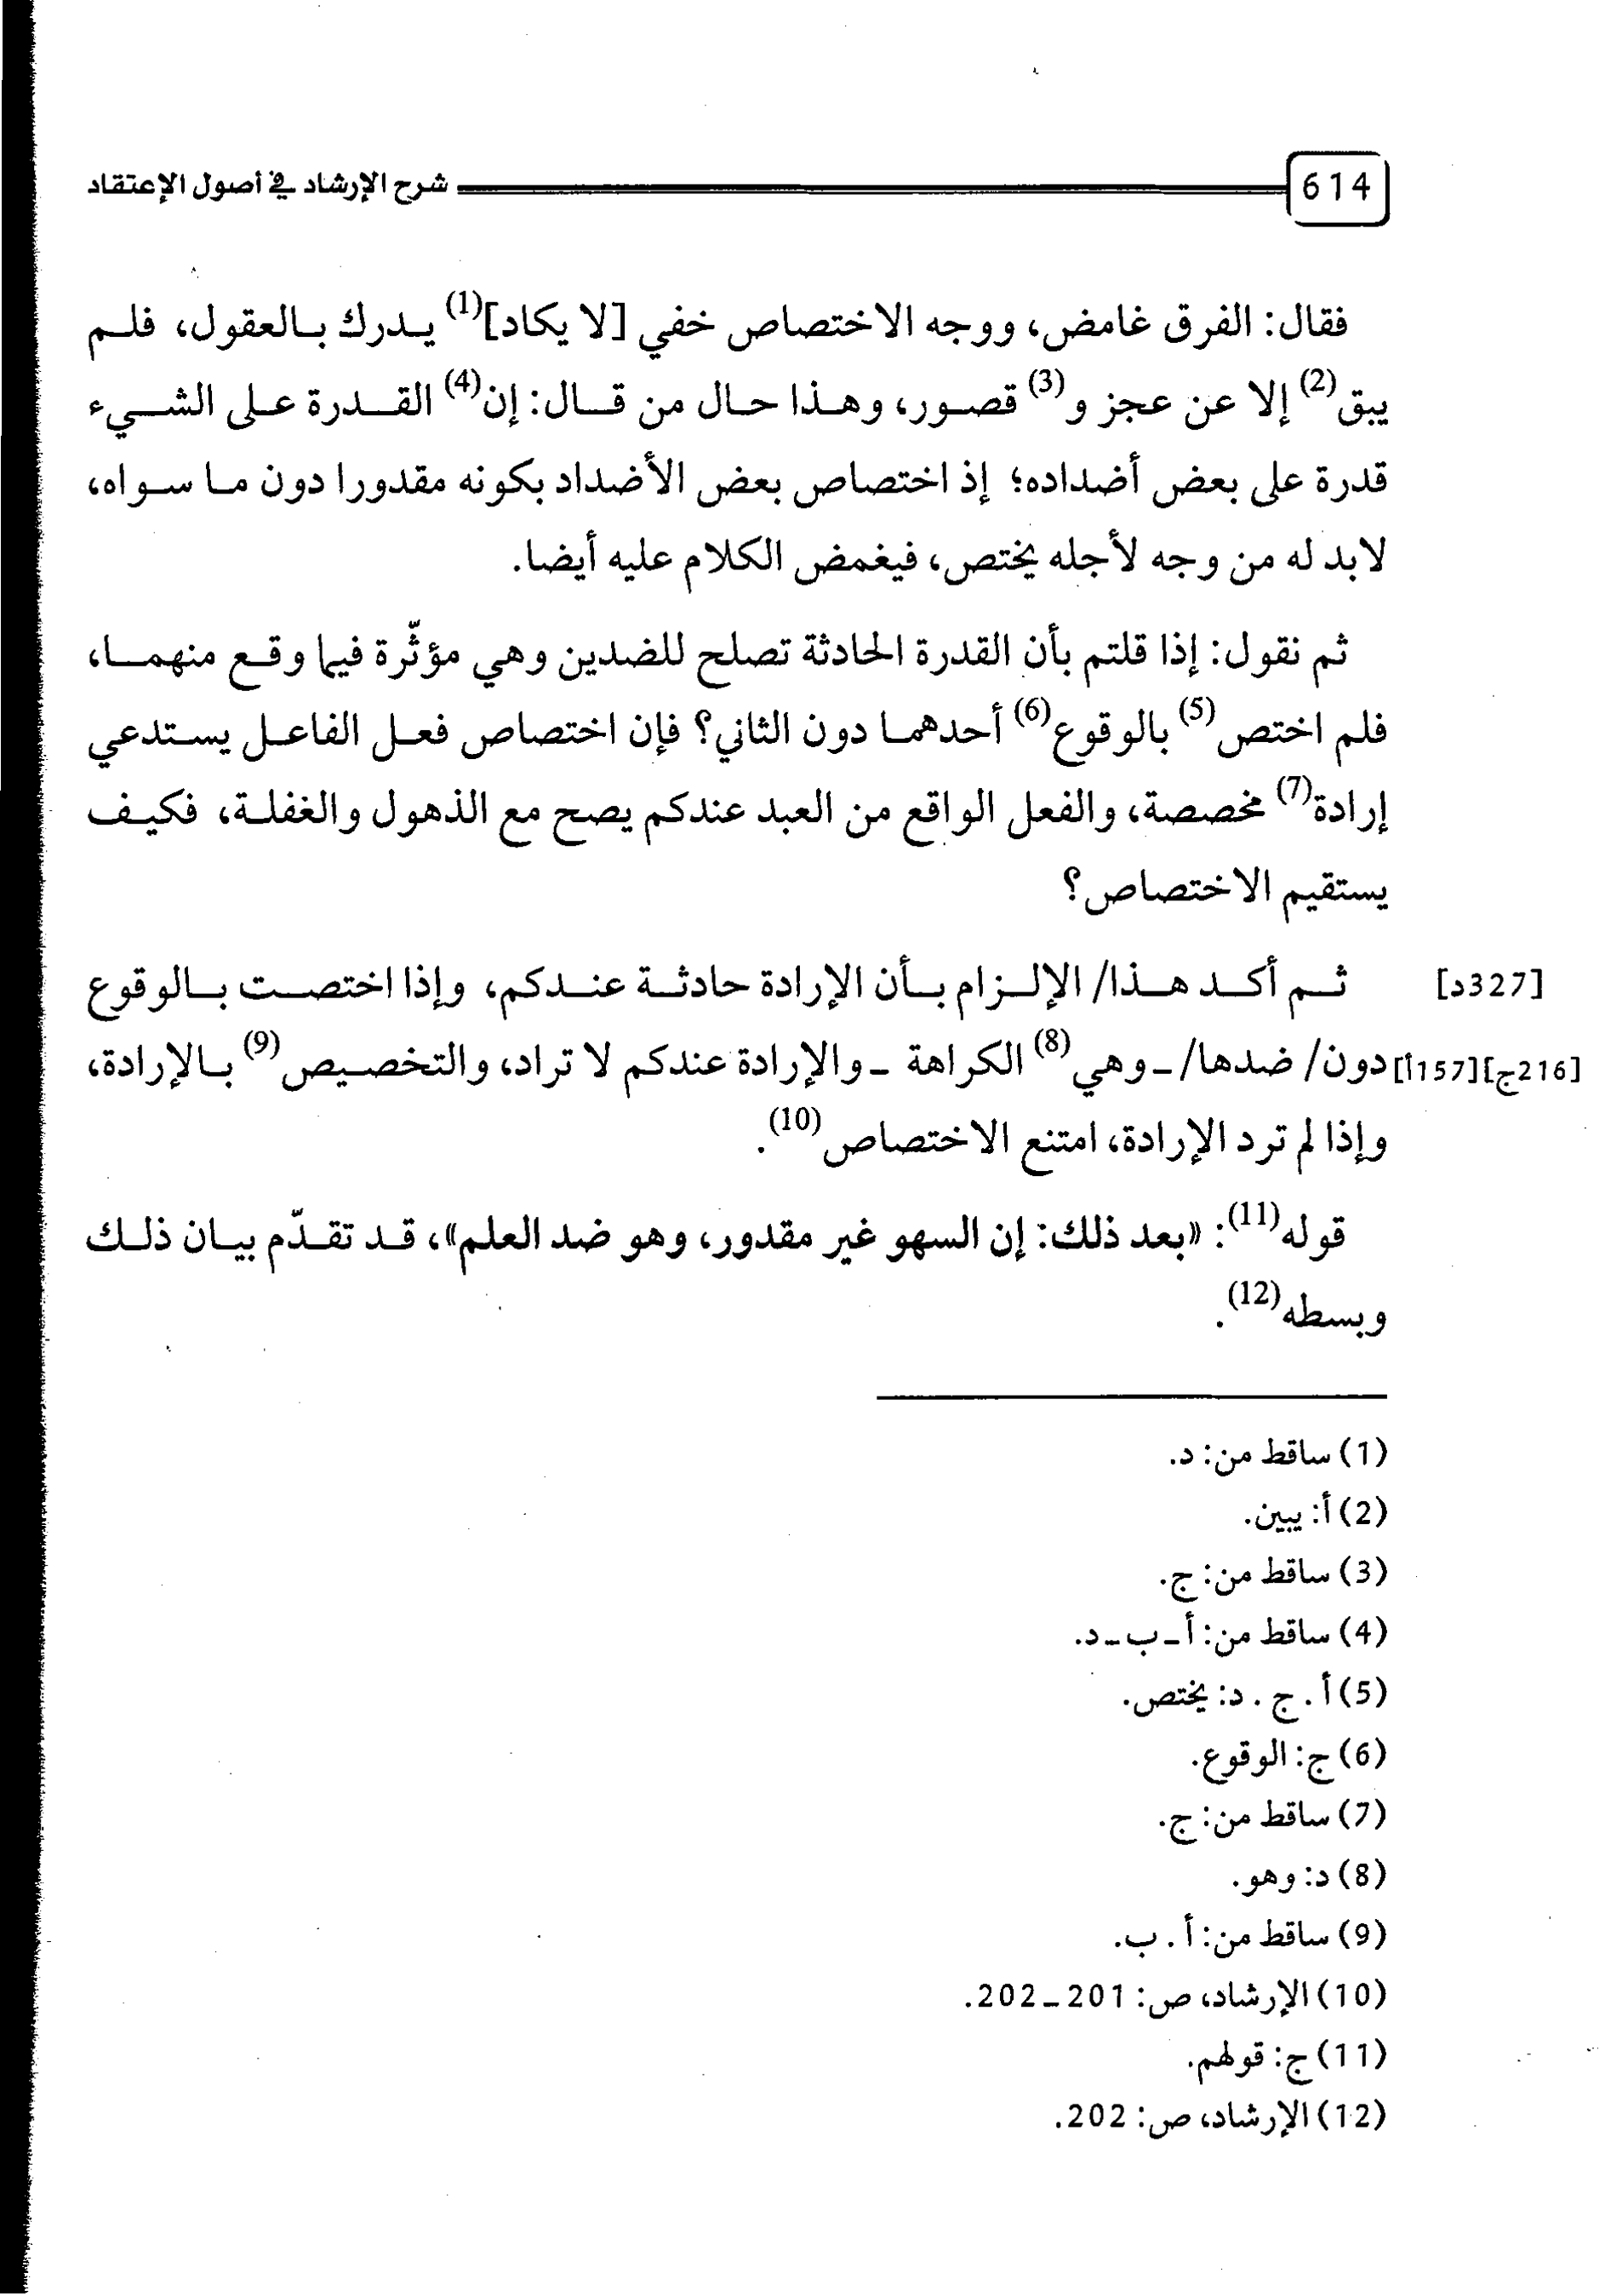 614 شرح الإرشاد في أصول الإعتقاد
فقال: الفرق غامض، ووجه الاختصاص خفي [لا يكاد](1) يـدرك بـالعقول، فلـم
يبق(2) إلا عن عجز و(3) قصـور، وهـذا حـال من قـال: إن(4) القـدرة عـلى الشـيء
قدرة على بعض أضداده؛ إذ اختصاص بعض الأضداد بكونه مقدورا دون مـا سـواه،
لابد له من وجه لأجله يختص، فيغمض الكلام عليه أيضا.
ثم نقول: إذا قلتم بأن القدرة الحادثة تصلح للضدين وهي مؤثّرة فيما وقـع منهمـا،
فلم اختص(5) بالوقوع(6) أحدهمـا دون الثاني؟ فإن اختصاص فعـل الفاعـل يسـتدعي
إرادة(7) مخصصة، والفعل الواقع من العبد عندكم يصح مع الذهول والغفلـة، فكيـف
يستقيم الاختصاص؟
[327د] ثـم أكـد هـذا/ الإلـزام بـأن الإرادة حادثـة عنـدكم، وإذا اختصـت بـالوقوع
[216ج][157أ] دون/ ضدها/ ـ وهي(8) الكراهة ـ والإرادة عندكم لا تراد، والتخصـيص(9) بـالإرادة،
وإذا لم ترد الإرادة، امتنع الاختصاص(10).
قوله(11): «بعد ذلك: إن السهو غير مقدور، وهو ضد العلم»، قـد تقـدّم بيـان ذلـك
وبسطه(12).
(1) ساقط من: د.
(2) أ: يبين.
(3) ساقط من: ج.
(4) ساقط من: أ ـ ب ـ د.
(5) أ . ج . د: يختص.
(6) ج: الوقوع.
(7) ساقط من: ج.
(8) د: وهو.
(9) ساقط من: أ . ب.
(10) الإرشاد، ص: 201ـ202.
(11) ج: قولهم.
(12) الإرشاد، ص: 202.